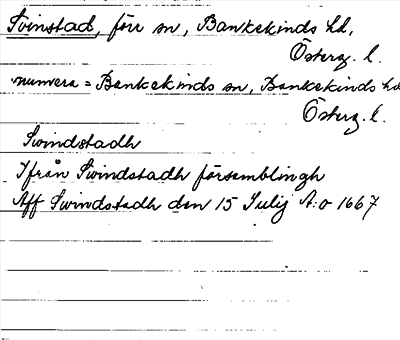 Svinstad, förr sn, Bankekinds hd,
Österg. l.
numera = Bankekinds sn, Bankekinds hd
Österg. l.
Swindstadh
Ifrån Swindstadh församblingh
Aff Swindstadh den 15 Julij A:o 1667